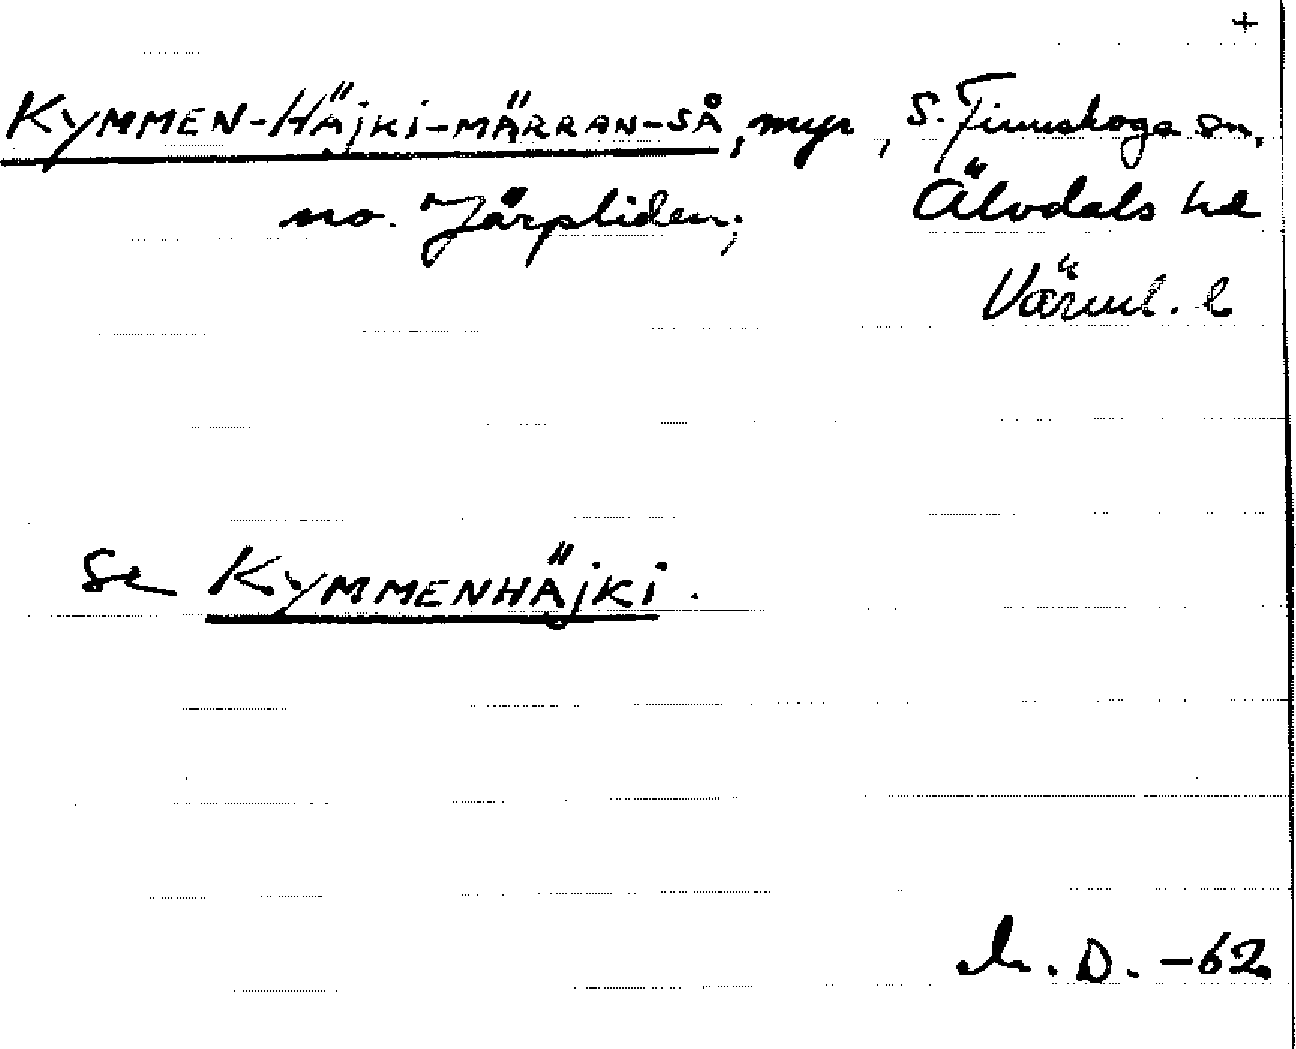 +
KYMMEN-HÄJKI-MÄRRAN-SÅ, myr, S. Finnskoga sn,
no. Järpliden; Älvdals hd
Värml. l
Se KYMMENHÄJKI.
D. -62